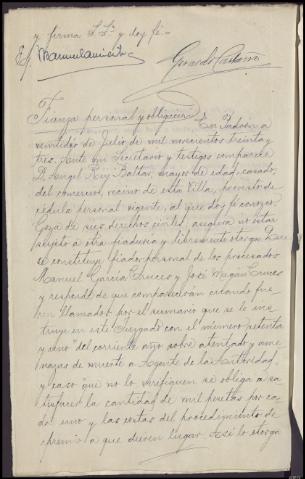 y firma S. Sª y doy fé.-
E/
Gerardo
Fianza personal y obligación En
veintidos de Julio de mil novecientos treinta y
tres. Ante mi Secretario y testigos comparece
D. Angel Rey Baltar, mayor de edad, casado,
del comercio, vecino de esta Villa, provisto de
cédula personal vigente, al que doy fé conozco.
Goza de sus derechos civiles, asegura no estar
sujeto a otra fiaduria y libremente otorga: Que
se constituye fiador personal de los procesados
Manuel García Cruces y José Magán Cruces
y responde de que comparecerán cuando fue-
ren llamados por el sumario que se les ins-
truye en este Juzgado con el número setenta
y uno del corriente año sobre atentado y ame-
nazas de muerte a Agente de la Autoridad,
y caso que no lo verifiquen se obliga a sa-
tisfacer la cantidad de mil pesetas por ca-
da uno y las costas del procedimiento de
apremio a que dieren lugar. Así lo otorga